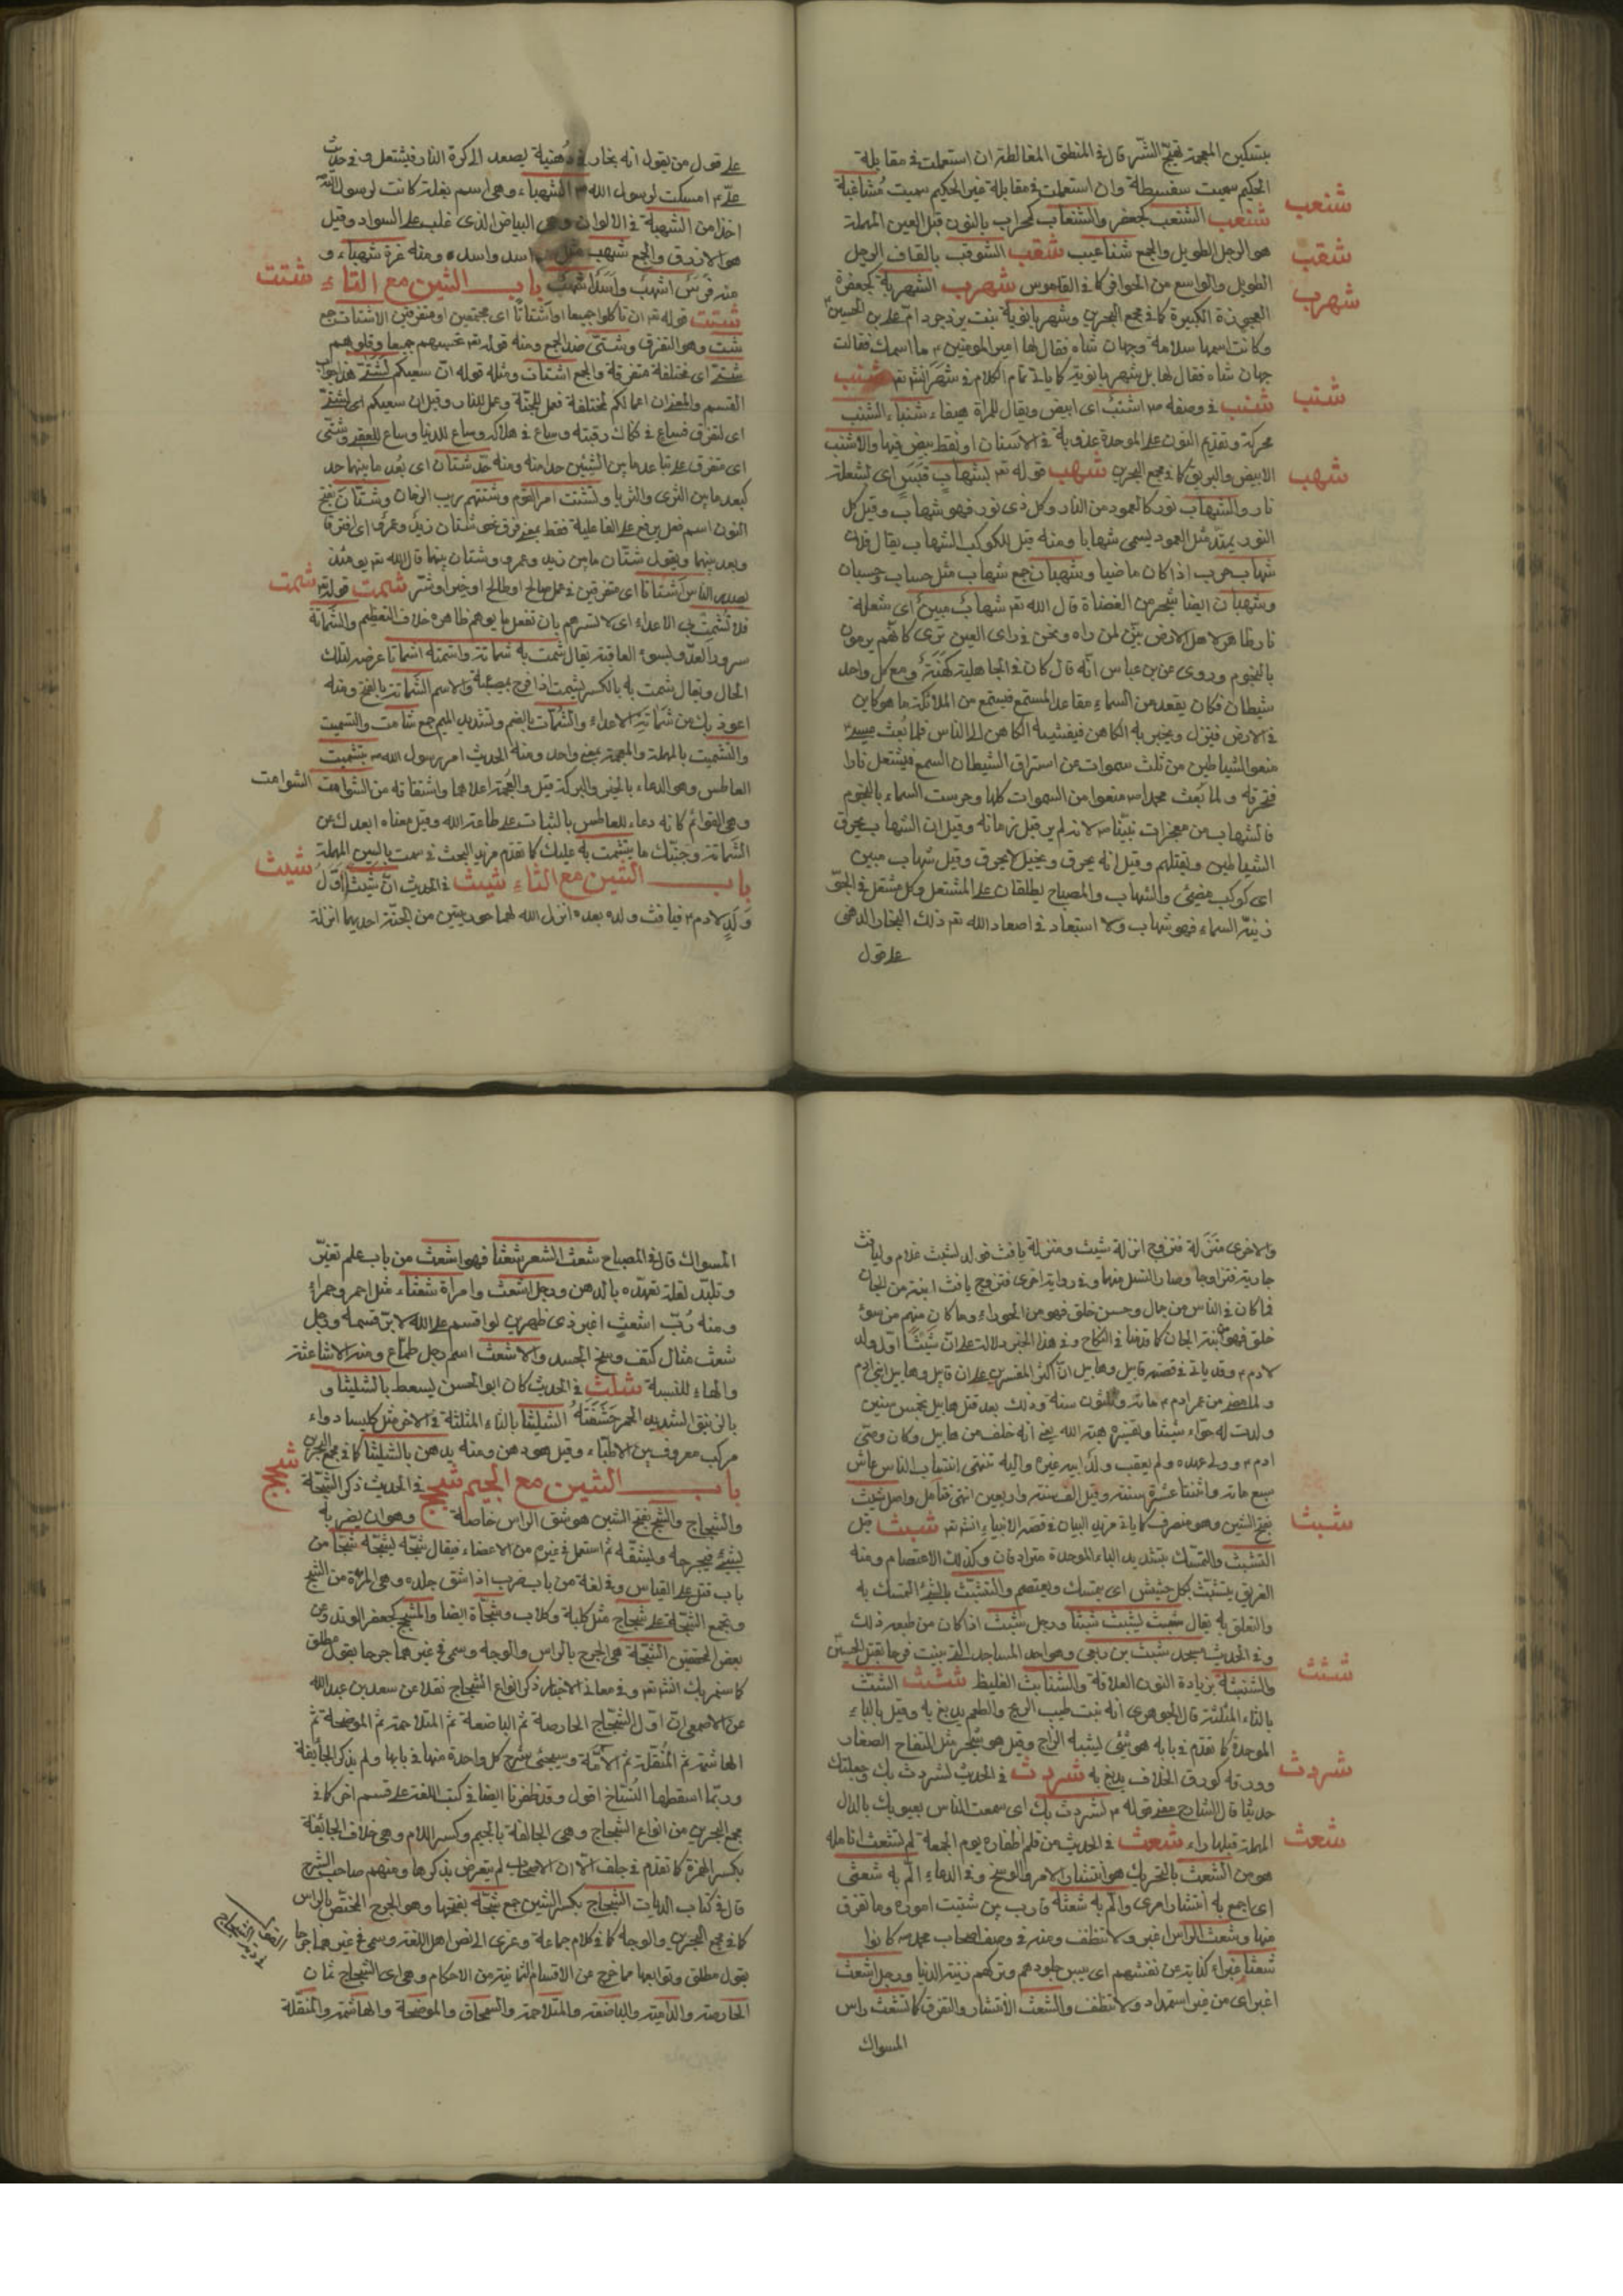 بتسكين المعجمة تهيج الشر قال في المنطق المغالطة ان استعملت في مقابلة
الحكيم سميت سفسطة وان استعملت في مقابلة غير الحكيم سميت مشاغبة
شنعب
شنعب الشنعب كجعفر والشنعاب كمحراب بالنون قبل العين المهملة
هو الرجل الطويل والجمع شناعيب شقب الشوقب بالقاف الرجل
شقب
الطويل والواسع من الحوافر كما في القاموس شهرب الشهربة كجعفرة
شهرب
العجوزة الكبيرة كما في مجمع البحرين وشهربانويه بنت يزدجرد ام علي بن الحسين
وكانت اسمها سلامة وجهان شاه فقال لها امير المؤمنين ما اسمك فقالت
جهان شاه فقال لها بل شهربانويه كما ياتي تمام الكلام في شهر انش تع شنب
شنب
شنب في وصفه ص اشنب اى ابيض ويقال للمراة هيفاء شنباء الشنب
محركة وتقديم النون على الموحدة عذوبة في الاسنان او نقط بيض فيها والاشنب
الابيض والبريق كما في مجمع البحرين شهب قوله تع بشهاب قبس اى بشعلة
شهب
نار والشهاب نور كالعمود من النار وكل ذى نور فهو شهاب وقيل كل
النور يمتد مثل العمود يسمى شهابا ومنه قيل للكوكب الشهاب يقال فلان
شهاب حرب اذا كان ماضيا وشهبان جمع شهاب مثل حساب وحسبان
وشهبان ايضا شجر من الغضاة قال الله تع شهاب مبين اى شعلة
نار ظاهرة لاهل الارض بين لمن راه ونحن في راى العين نرى كانهم يرمون
بالنجوم وروى عن بن عباس انه قال كان في الجاهلية كهنة ومع كل واحد
شيطان فكان يقعد من السماء مقاعد للسمع فيستمع من الملائكة ما هو كاين
في الارض فينزل ويخبر به الكاهن فيفشيه الكاهن الى الناس فلما بعث عيسى
منعوا الشياطين من ثلث سموات عن استراق الشيطان السمع فيشتعل نارا
فتحرقه ولما بعث محمد ص منعوا من السموات كلها وحرست السماء بالنجوم
فالشهاب من معجزات نبينا ص لانه لم ير قبل زمانه وقيل ان الشهاب يحرق
الشياطين ويقتلهم وقيل انه يحرق ويخبل لا يحرق وقيل شهاب مبين
اى كوكب مضيئ والشهاب والمصباح يطلقان على المشتعل وكل مشتعل في الجو
زينة السماء فهو شهاب ولا استبعاد في اصعاد الله تع ذلك البخار الدهنى
على قول
على قول من يقول انه بخار فيه دهنية يصعد الى كرة النار فيشتعل وفي حديث
على امسكت لرسول الله ص الشهباء وهي اسم بغلة كانت لرسول الله
اخذا من الشهبة في الالوان وهي البياض الذى غلب على السواد وقيل
هو الازرق والجمع شهب مثل اسد واسده ومنه غرة شهباء و
منه فرس اشهب واسد اشهب باب الشين مع التاء
شتت
شتت قوله تع ان تاكلوا جميعا او اشتاتا اى مجتمعين او متفرقين الاشتات جمع
شت وهو التفرق وشتى ضد الجمع ومنه قوله تع تحسبهم جميعا وقلوبهم
شتى اى مختلفة متفرقة والجمع اشتات ومثله قوله ان سعيكم لشتى هذا جواب
القسم والمعنى ان اعمالكم لمختلفة فعمل للجنة وعمل للنار وقيل ان سعيكم اى لشتى
اى لتفرق فساع في فكاك رقبته وساع في هلاكه وساع للدنيا وساع للعقبى وشتى
اى متفرق على تباعد ما بين الشيئين حدا منه ومنه قد شتان اى بعد ما بينهما حد
كبعد ما بين الثرى والثريا وتشتت امر القوم وشتتهم ريب الزمان وشتان بفتح
النون اسم فعل يرفع على الفاعلية فقط بمعنى فرق نحو شتان زيد وعمرو اى افترقا
وبعد بينهما ويقول شتان ما بين زيد وعمرو وشتان بينهما قال الله تع يومئذ
يصدر الناس اشتاتا اى متفرقين في عمل صالح او طالح او خير او شر شمت قوله تع
شمت
فلا تشمت بي الاعداء اى لا تسرهم بان تفعل ما يوهم ظاهره خلاف التعظيم والشماتة
سرور العدو بسوء العاقبة يقال شمت به شماتة واشمته اشماتا عرضه لتلك
الحال ويقال شمت به بالكسر يشمت اذا فرح بمصيبة والاسم الشماتة بالفتح ومنه
اعوذ بك من شماتة الاعداء والشمات بالضم وتشديد الميم جمع شامت والتسميت
والتشميت بالمهملة والمعجمة بمعنى واحد ومنه الحديث امر رسول الله ص بتشميت
العاطس وهو الدعاء بالخير والبركة قيل والمعجمة اعلاهما واشتقاقه من الشوامت
الشوامت
وهي القوائم كانه دعاء للعاطس بالثبات على طاعة الله وقيل معناه ابعدك عن
الشماتة وجنبك ما يشمت به عليك كما تقدم مزيد البحث في سمت بالسين المهملة
باب الشين مع الثاء شيث في الحديث ان شيث اول
شيث
ولد لادم فيافث ولد بعده انزل الله لهما حوريتين من الجنة احديهما انزلة
والاخرى منزلة فتزوج انزلة شيث ومنزلة يافث فولد لشيث غلام وليافث
جارية فتزاوجا وصار النسل منهما وفي رواية اخرى فتزوج يافث ابنة من الجان
فما كان في الناس من جمال وحسن خلق فهو من الحوراء وما كان منهم من سوء
خلق فهو من بنت الجان كما قدمنا في النكاح وفي هذا الخبر دلالة على ان شيثا اول ولد
لادم وقد ياتى في قصة قابيل وهابيل ان اكثر المفسرين على ان قابيل وهابيل ابنى ادم
ولما مضى من عمر ادم مائة وثلثون سنة وذلك بعد قتل هابيل بخمس سنين
ولدت له حواء شيثا وتفسيره هبة الله يعنى انه خلف من هابيل وكان وصى
ادم وولى عهده ولم يعقب ولد ابيه غيره واليه تنتهى انتساب الناس عاش
سبع مائة واثنتا عشرة سنة وقيل الف سنة واربعين انتهى فتامل واصل شيث
شبث
بفتح الشين وهو منصرف كما ياتى مزيد البيان في قصة الانبياء انش تع شبث قيل
التشبث والتمسك بتشديد الباء الموحدة مترادفان وكذلك الاعتصام ومنه
الغريق يتشبث بكل حشيش اى يتمسك ويعتصم والتشبث بالشئ التمسك به
والتعلق به يقال شبث يشبث شبثا ورجل شبث اذا كان من طبعه ذلك
وفي الحديث مسجد شبث بن ربعى وهو احد المساجد التى بنيت فرحا بقتل الحسين
والشنبثة بزيادة النون العلاقة والشنابث الغليظ شثث الشث
شثث
بالثاء المثلثة قال الجوهرى انه نبت طيب الريح والطعم يدبغ به وقيل بالباء
الموحدة كما تقدم في بابه هو شئ يشبه الزاج وقيل هو شجر مثل التفاح الصغار
وورقه كورق الخلاف يدبغ به شردث في الحديث لشردث بك وجعلتك
شردث
حديثا قال الشارح معنى قوله لشردث بك اى سمعت الناس بعيوبك بالدال
المهملة قبلها راء شعث في الحديث من قلم اظفاره يوم الجمعة لم تشعث انامله
شعث
هو من الشعث بالتحريك هو انتشار الامر والوسخ وفي الدعاء الم به شعثى
اى اجمع به انتشار امرى والم به شعثه قارب بين شتيت اموره وما تفرق
منها وشعث الراس اغبر ولا تنظف ومنه في وصف اصحاب محمد ص كانوا
شعثا غبراء كناية عن تقشفهم اى يبس جلودهم وتركهم زينة الدنيا ورجل اشعث
اغبر اى من غير استمداد ولا تنظف والشعث الانتشار والتفرق كما تشعث راس
المسواك
المسواك قال في المصباح شعث الشعر شعثا فهو اشعث من باب علم تغير
وتلبد لقلة تعهده بالدهن ورجل اشعث وامراة شعثاء مثل احمر وحمراء
ومنه رب اشعث اغبر ذى طمرين لو اقسم على الله لابر قسمه ورجل
شعث مثال كتف وسخ الجسد والاشعث اسم رجل طماع ومنه الاشاعثة
والهاء للنسبة شلث في الحديث كان ابو الحسن يسعط بالشليثا و
بالزنبق الشديد الحر الشليثا بالثاء المثلثة في الاخر مثل كليسا دواء
مركب معروف بين الاطباء وقيل هو دهن ومنه يدهن بالشليثا كما في مجمع البحرين
باب الشين مع الجيم شجج في الحديث ذكر الشجة
شجج
والشجاج والشج بفتح الشين هو شق الراس خاصة وهو ان يضربه
بشئ فيجرحه ويشقه ثم استعمل في غيره من الاعضاء فيقال شجه يشجه شجا من
باب قتل على القياس وفي لغة من باب ضرب اذا شق جلده وهي المرة من الشج
وتجمع الشجة على شجاج مثل كلبة وكلاب وشجات ايضا والمشجج كجعفر الوتد وعن
بعض المحققين الشجة هى الجرح بالراس والوجه وسمى في غيرهما جرحا بقول مطلق
كما سنمر بك انش تع وفي معانى الاخبار ذكر انواع الشجاج نقلا عن سعد بن عبد الله
عن الاصمعى ان اول الشجاج الحارصة ثم الباضعة ثم المتلاحمة ثم الموضحة ثم
الهاشمة ثم المنقلة ثم الامة وسيجئ شرح كل واحدة منها في بابها ولم يذكر الجائفة
وربما اسقطها النساخ اقول وقد ظفرنا ايضا في كتب اللغة على قسم اخر كما في
مجمع البحرين من انواع الشجاج وهى الجالفة بالجيم وكسر اللام وهى خلاف الجائفة
بكسر الهمزة كما تقدم في جلف الا ان الاصحاب لم يتعرض بذكرها ومنهم صاحب الشرح
قال في كتاب الديات الشجاج بكسر الشين جمع شجة بفتحها وهو الجرح المختص بالراس
كما في مجمع البحرين والوجه كما في كلام جماعة وعزى الى بعض اهل اللغة وسمى في غيرهما جرحا
بقول مطلق وتوابعها مما خرج من الاقسام الثمانية من الاحكام وهى اى الشجاج ثمان
الحارصة والدامية والباضعة والمتلاحمة والسمحاق والموضحة والهاشمة والمنقلة